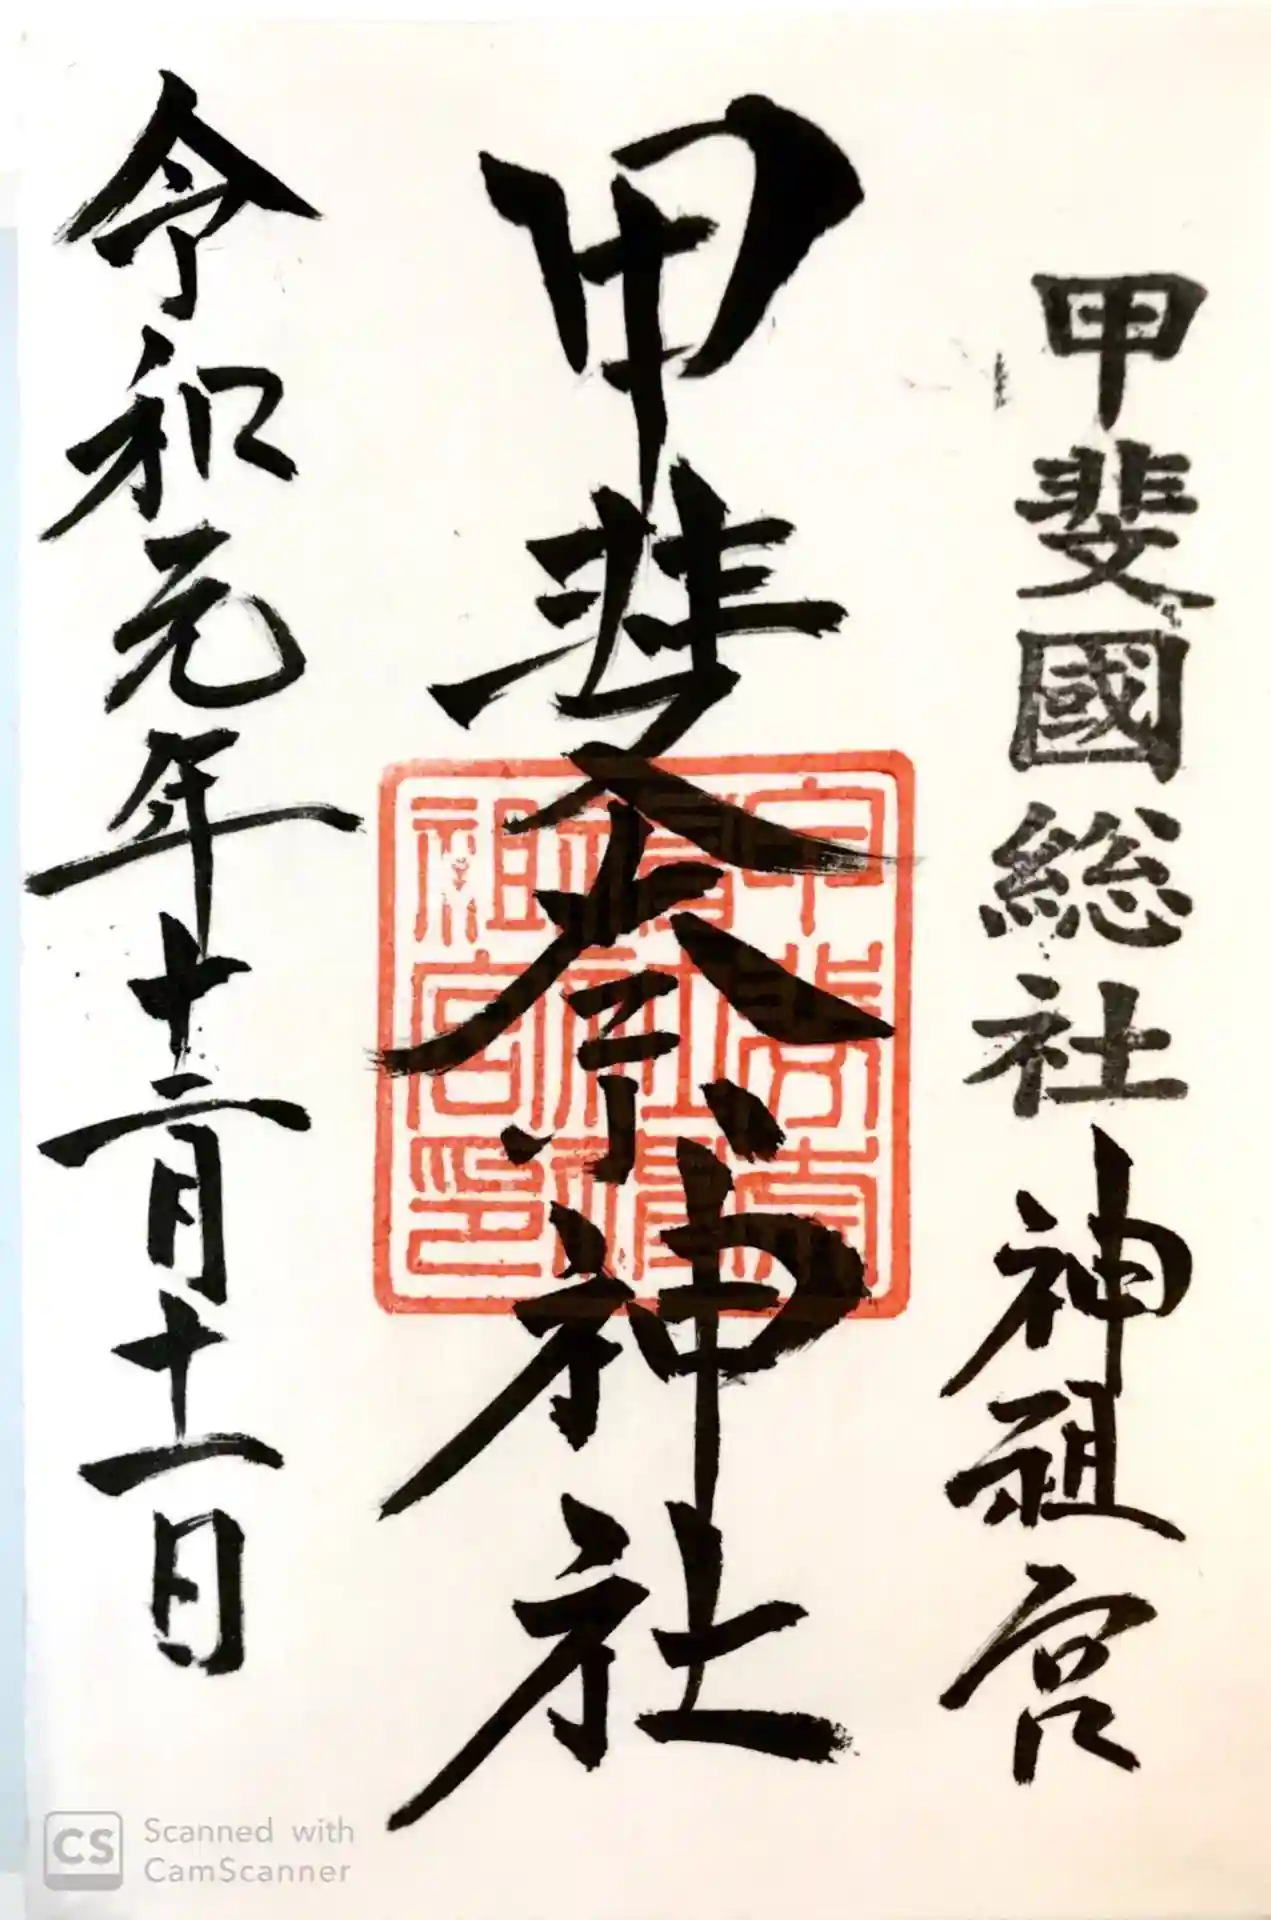 甲斐國総社神祖宮
甲斐奈神社
令和元年十二月十一日
祖宮印
CS Scanned with
CamScanner